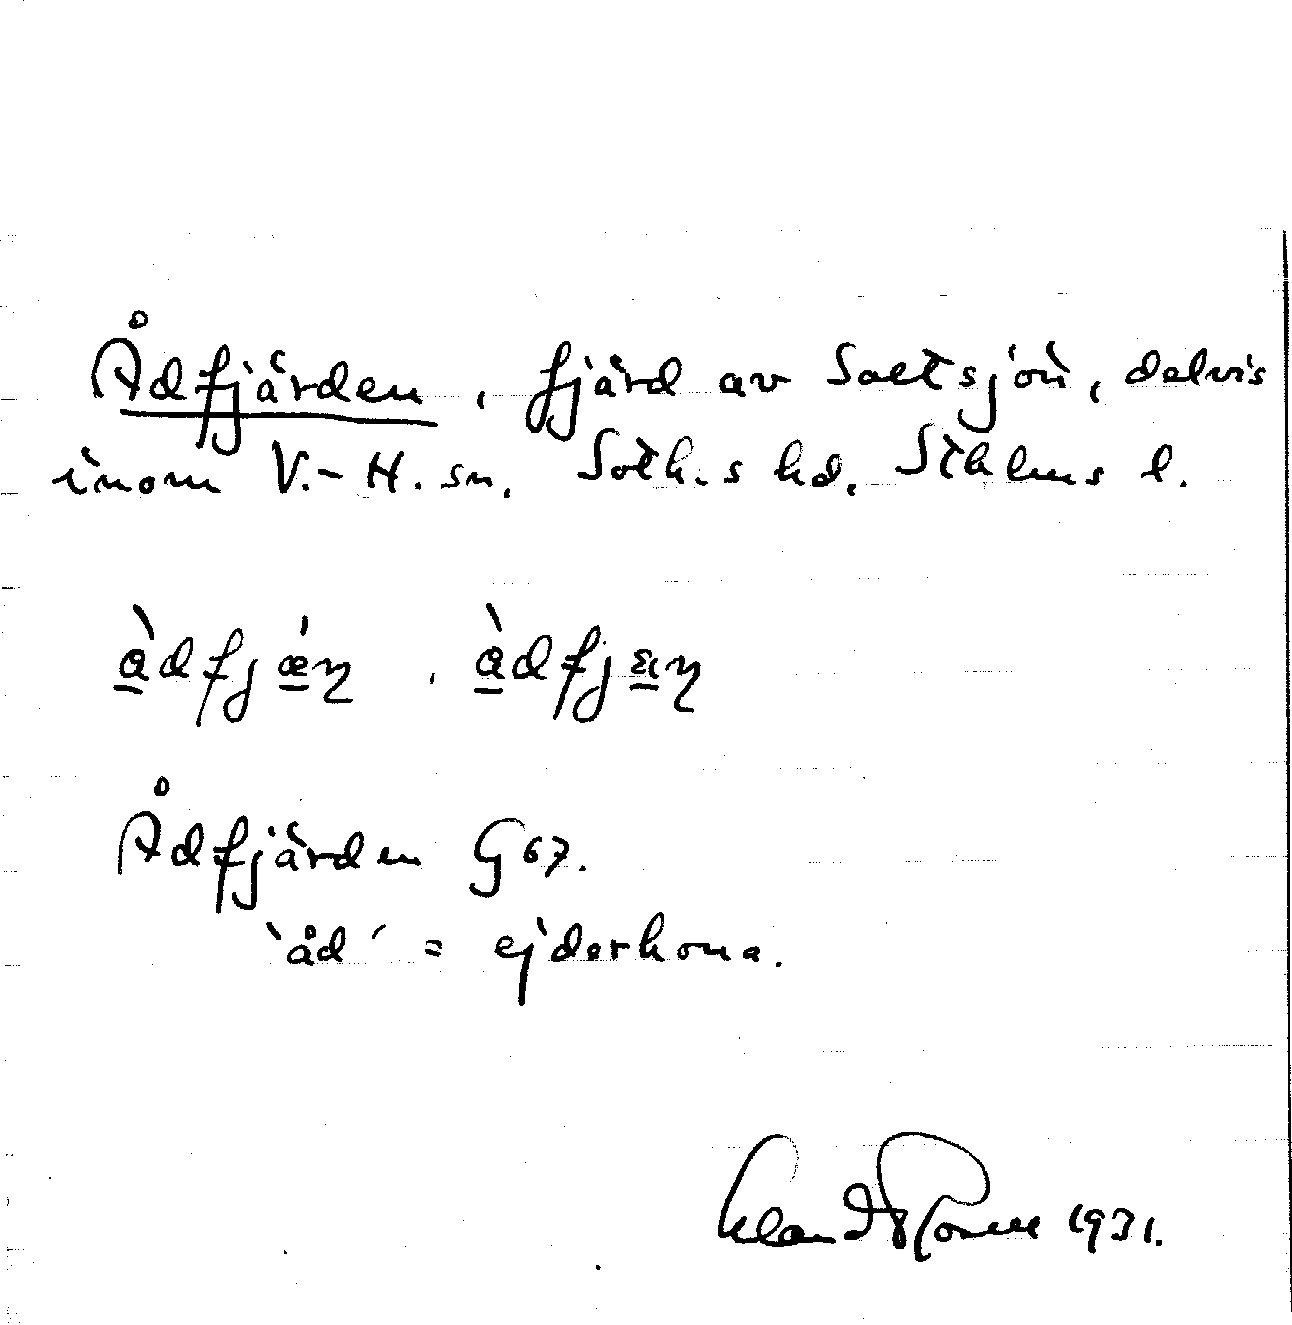 Ådfjärden, fjärd av Saltsjön, delvis
inom V.-H. sn. Soth.s hd. Sthlms l.
àdfjǽn, àdfjæn
Ådfjärden G 67.
`åd´ = ejderhona.
1931.